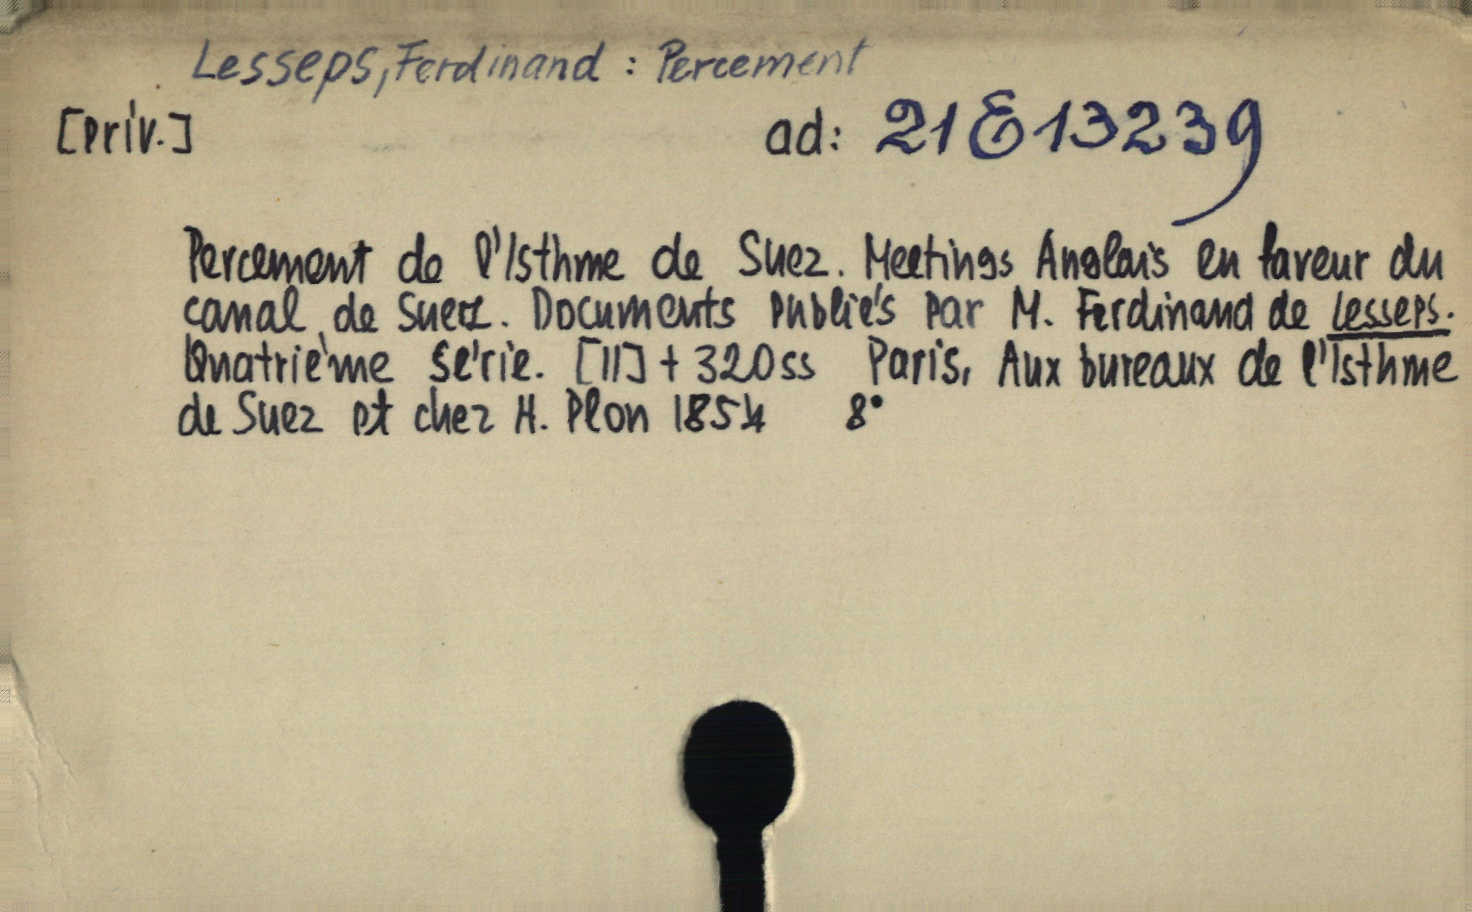 Lesseps, Ferdinand : Percement
[priv.] ad: 21 E 13239
Percement de l'Isthme de Suez. Meetings Anglais en faveur du
canal de Suez. Documents publiés par M. Ferdinand de Lesseps.
Quatrième série. [II] + 320 ss Paris, Aux bureaux de l'Isthme
de Suez et chez H. Plon 1854 8°